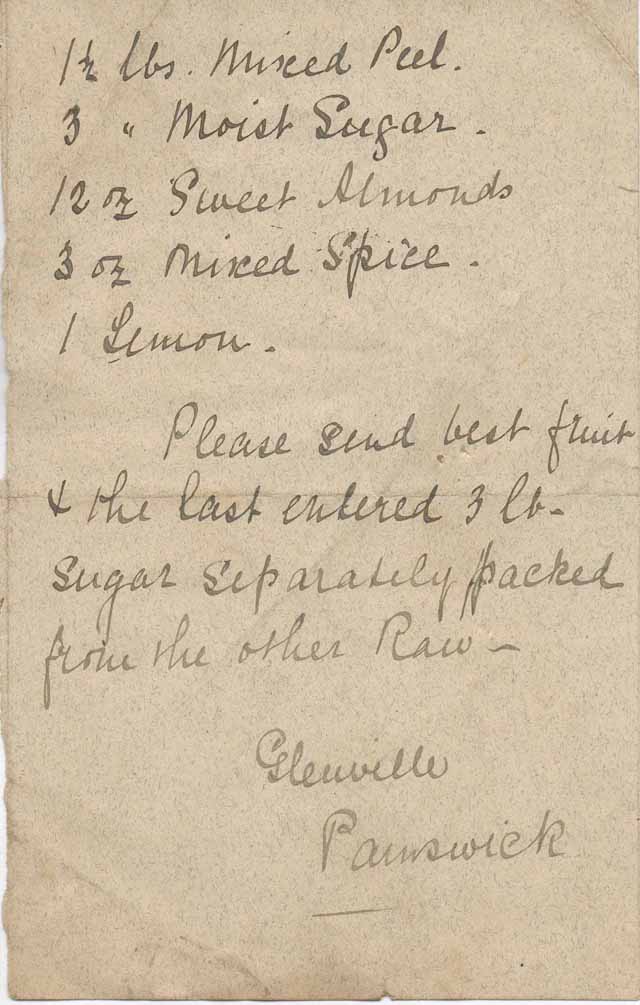 1½ lbs. Mixed Peel.
3 " Moist Sugar.
12 oz Sweet Almonds
3 oz Mixed Spice.
1 Lemon.
Please send best fruit
& the last entered 3 lb.
sugar separately packed
from the other Raw —
Glenville
Painswick